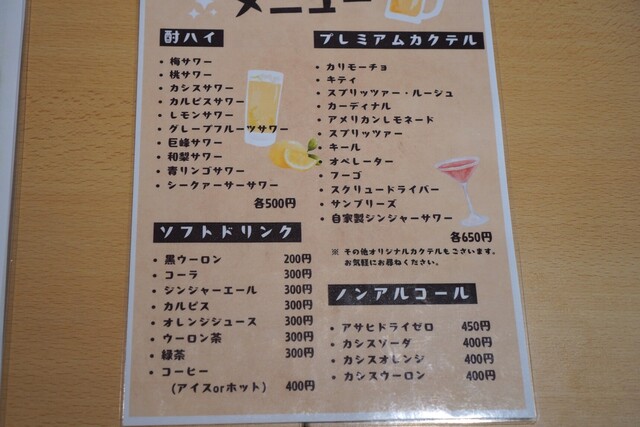 メニュー
酎ハイ
・梅サワー
・桃サワー
・カシスサワー
・カルピスサワー
・レモンサワー
・グレープフルーツサワー
・巨峰サワー
・和梨サワー
・青リンゴサワー
・シークァーサーサワー
各500円
ソフトドリンク
・黒ウーロン 200円
・コーラ 300円
・ジンジャーエール 300円
・カルピス 300円
・オレンジジュース 300円
・ウーロン茶 300円
・緑茶 300円
・コーヒー
(アイスorホット) 400円
プレミアムカクテル
・カリモーチョ
・キティ
・スプリッツァー・ルージュ
・カーディナル
・アメリカンレモネード
・スプリッツァー
・キール
・オペレーター
・フーゴ
・スクリュードライバー
・サンブリーズ
・自家製ジンジャーサワー
各650円
※ その他オリジナルカクテルもございます。
お気軽にお尋ねください。
ノンアルコール
・アサヒドライゼロ 450円
・カシスソーダ 400円
・カシスオレンジ 400円
・カシスウーロン 400円